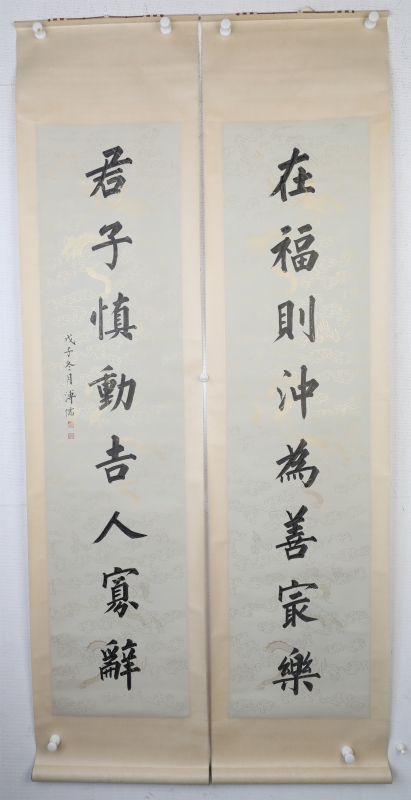 在福則沖為善㝡樂
君子慎動吉人寡辭
戊子冬月 溥儒